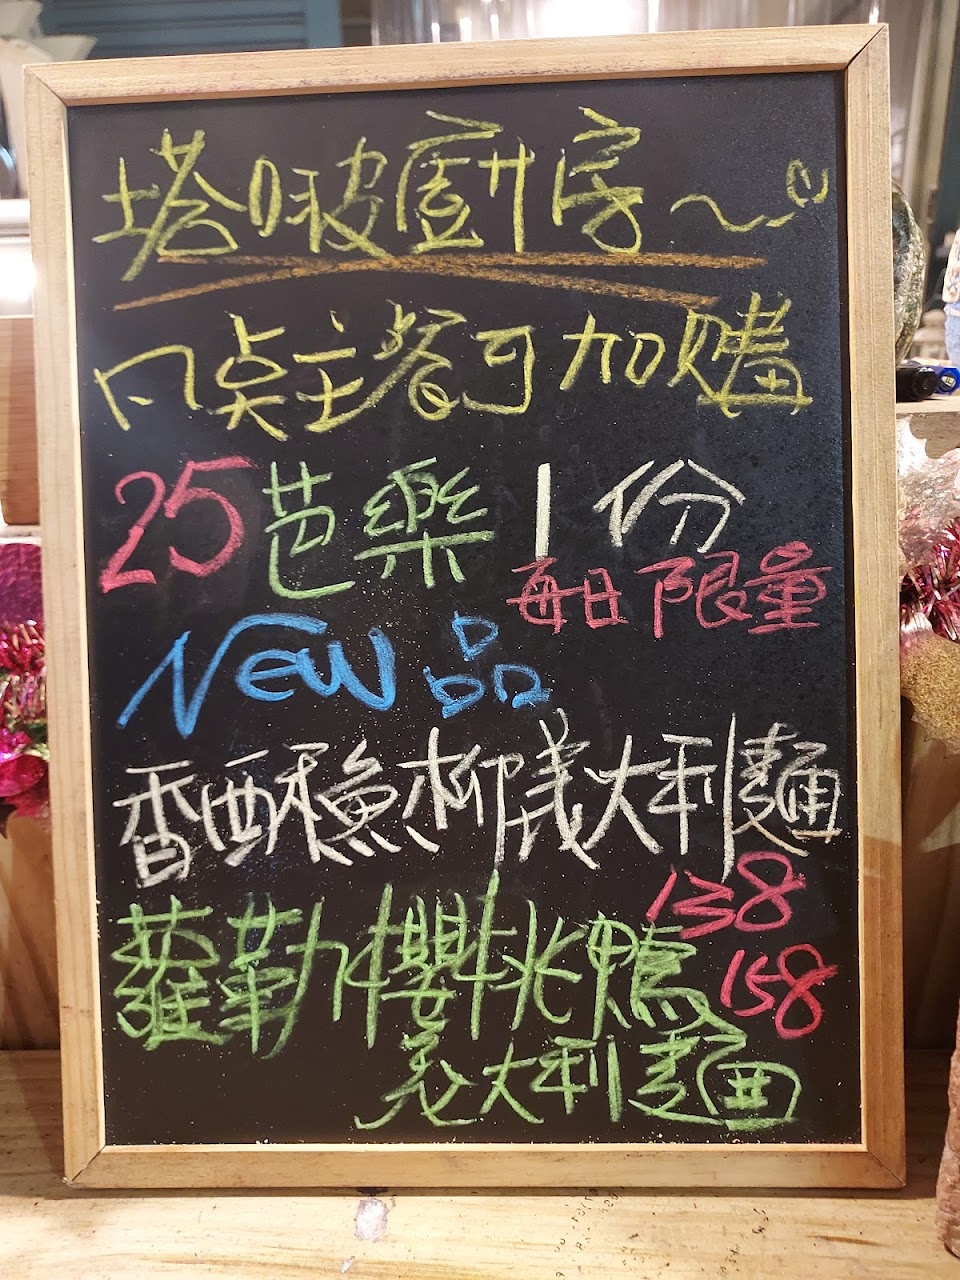 塔啵廚房~
凡点主餐可加購
25芭樂1份
每日限量
NEW品
香酥魚柳義大利麵
138
蘿勒櫻桃鴨 158
義大利麵